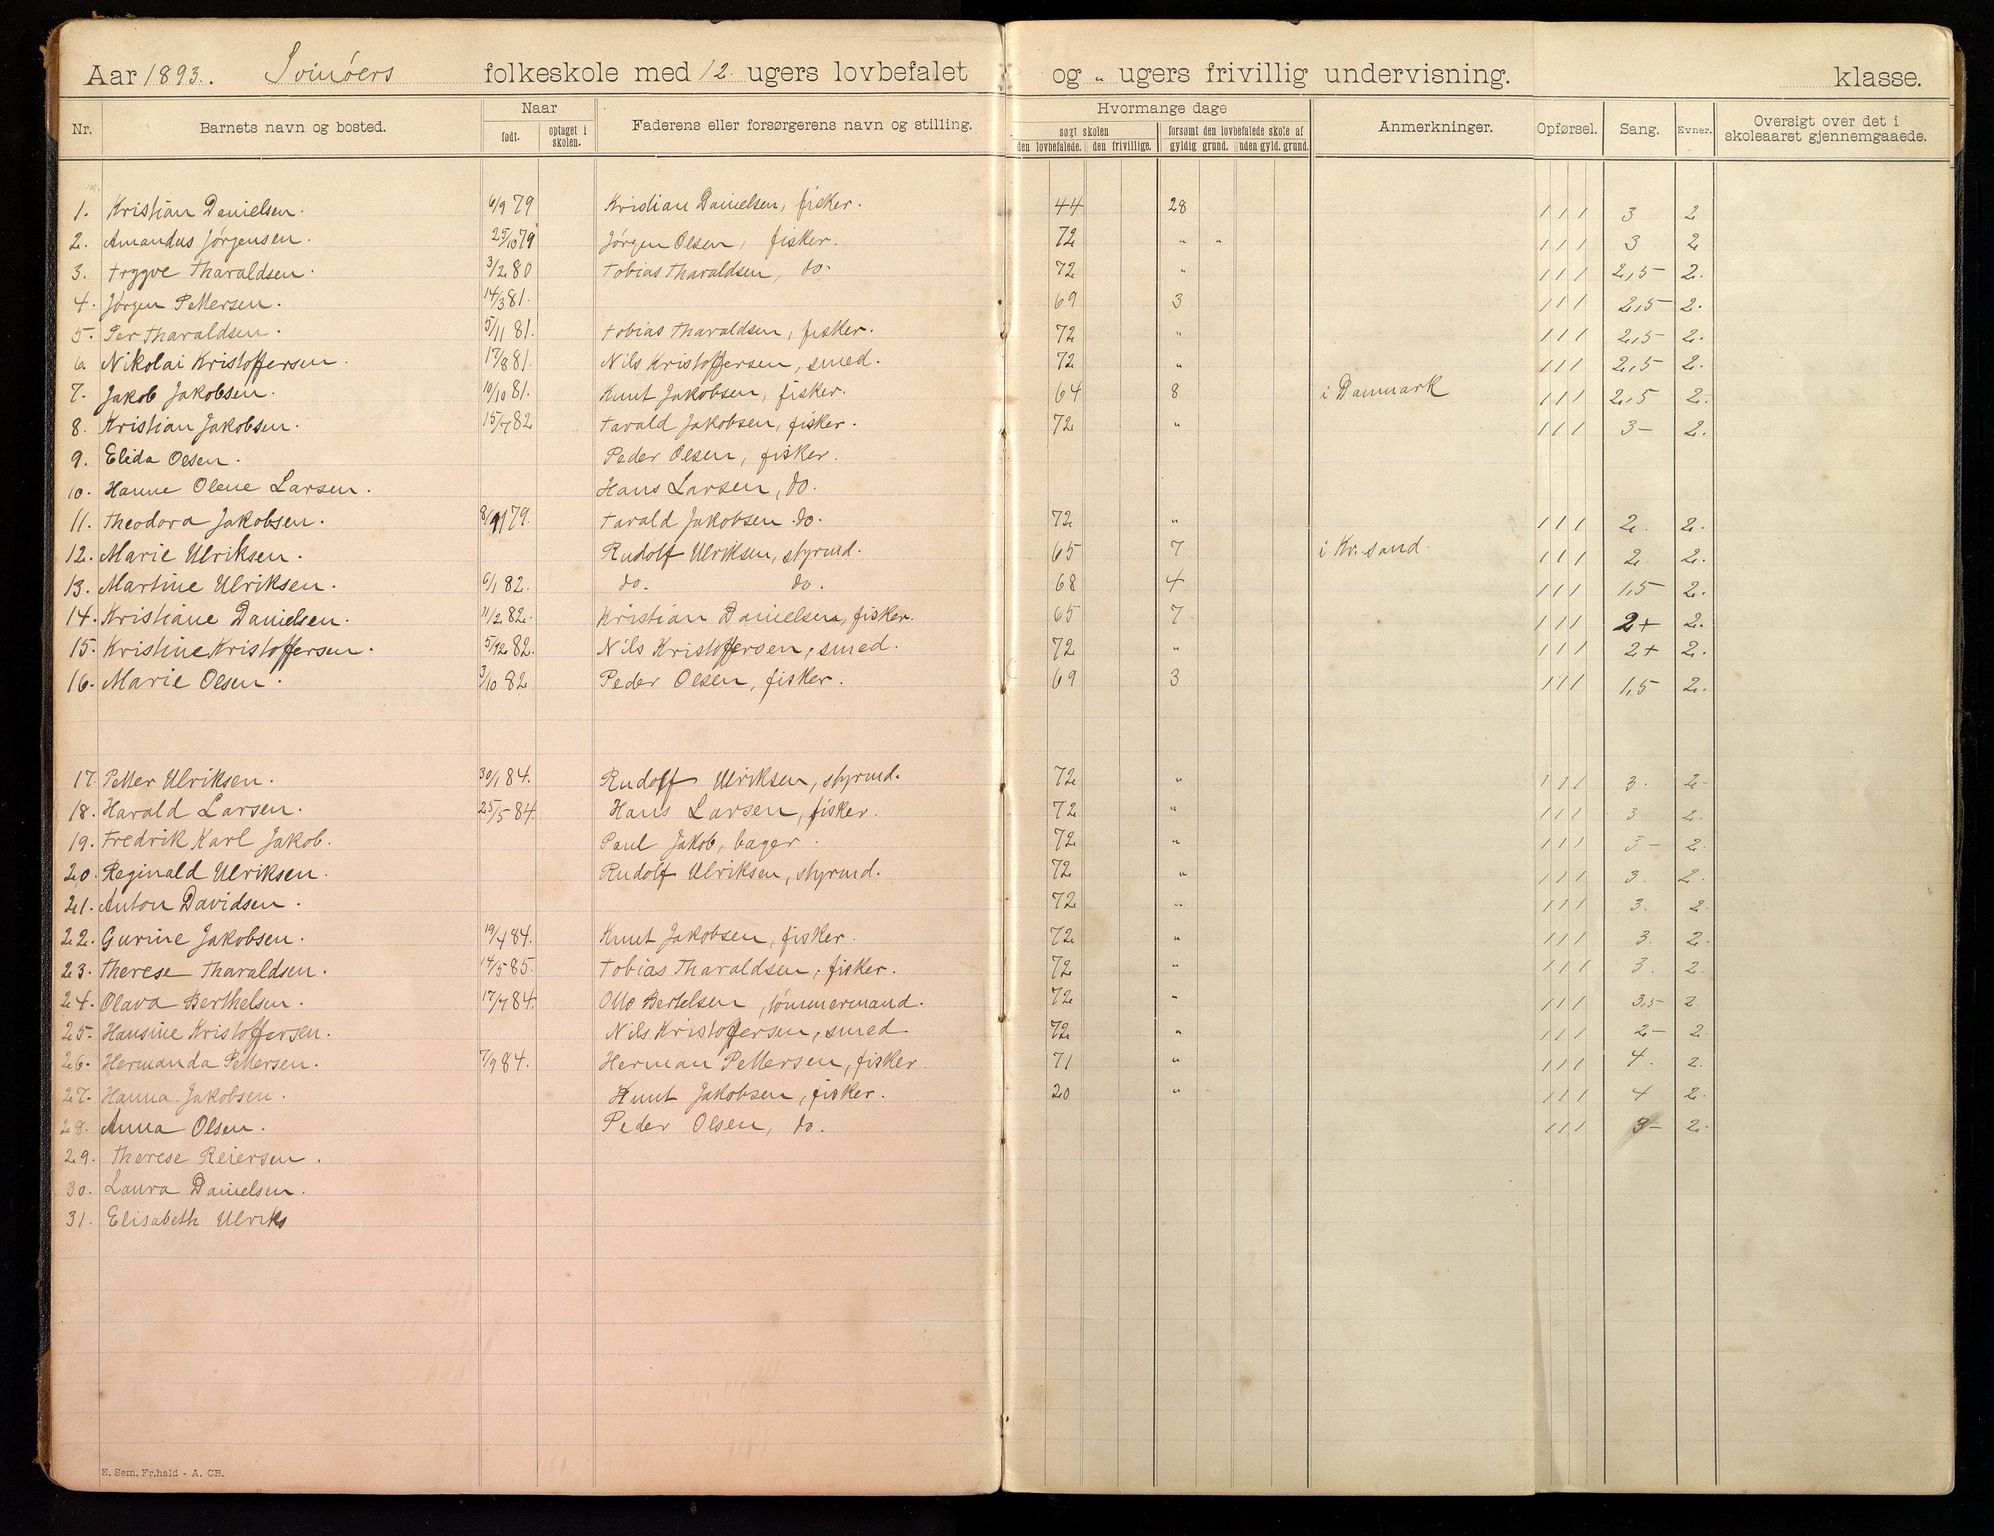 Aar 1893. Svinøers folkeskole med 12. ugers lovbefalet og " ugers frivillig undervisning. klasse.
Nr. Barnets navn og bosted. Naar født. optaget i skolen. Faderens eller forsørgerens navn og stilling. Hvormange dage søgt skolen den lovbefalede. den frivillige. forsømt den lovbefalede skole af gyldig grund. uden gyld. grund. Anmerkninger. Opførsel. Sang. Evner. Oversigt over det i skoleaaret gjennemgaaede.
1. Kristian Danielsen. 6/9 79 Kristian Danielsen, fisker. 44 28 1 1 1 3 2
2. Amandus Jørgensen. 25/10 79 Jørgen Olsen, fisker. 72 " " 1 1 1 3 2.
3. Trygve Tharaldsen. 3/2 80 Tobias Tharaldsen, do. 72 " 1 1 1 2,5- 2.
4. Jørgen Pettersen. 14/3 81. 69 3 1 1 1 2,5- 2.
5. Per Tharaldsen. 5/11 81. Tobias Tharaldsen, fisker. 72 " 1 1 1 2,5 2.
6. Nikolai Kristoffersen. 17/8 81. Nils Kristoffersen, smed. 72 " 1 1 1 2,5 2.
7. Jakob Jakobsen. 10/10 81. Knut Jakobsen, fisker. 64 8 i Danmark 1 1 1 2,5 2.
8. Kristian Jakobsen. 15/7 82 Tarald Jakobsen, fisker. 72 " 1 1 1 3- 2.
9. Elida Olsen. Peder Olsen, fisker.
10. Hanne Olene Larsen. Hans Larsen, do.
11. Theodora Jakobsen. 79. Tarald Jakobsen do. 72 " 1 1 1 2. 2.
12. Marie Ulriksen. Rudolf Ulriksen, styrmd. 65 7 i Kr.sand. 1 1 1 2 2.
13. Martine Ulriksen. 6/1 82. do. do. 68 4 1 1 1 1,5 2.
14. Kristiane Danielsen. 11/2 82. Kristian Danielsen, fisker. 65 7 1 1 1 2+ 2.
15. Kristine Kristoffersen. 5/12 82. Nils Kristoffersen, smed. 72 " 1 1 1 2+ 2.
16. Marie Olsen. 3/10 82 Peder Olsen, fisker. 69 3 1 1 1 1,5 2.
17. Petter Ulriksen. 30/1 84. Rudolf Ulriksen, styrmd. 72 " 1 1 1 3. 2
18. Harald Larsen. 25/5 84. Hans Larsen, fisker. 72 " 1 1 1 3 2.
19. Fredrik Karl Jakob. Paul Jakob, bager. 72 " 1 1 1 3- 2.
20. Reginald Ulriksen. Rudolf Ulriksen, styrmd. 72 " 1 1 1 3. 2.
21. Anton Davidsen. 72 " 1 1 1 3. 2.
22. Gurine Jakobsen. 84. Knut Jakobsen, fisker. 72 " 1 1 1 3. 2.
23. Therese Tharaldsen. 14/5 85. Tobias Tharaldsen, fisker. 72 " 1 1 1 3. 2.
24. Olava Berthelsen. 17/7 84. Otto Bertelsen, tømmermand. 72 " 1 1 1 3,5 2.
25. Hansine Kristoffersen. Nils Kristoffersen, smed. 72 " 1 1 1 2- 2.
26. Hermanda Pettersen. 7/9 84. Herman Pettersen, fisker. 71 " 1 1 1 4. 2.
27. Hanna Jakobsen. Knut Jakobsen, fisker. 20 " 1 1 1 4 2.
28. Anna Olsen. Peder Olsen, do. 1 1 1 3- 2.
29. Therese Reiersen.
30. Laura Danielsen.
31. Elisabeth Ulriks
E. Sem, Fr.hald - A. CB.